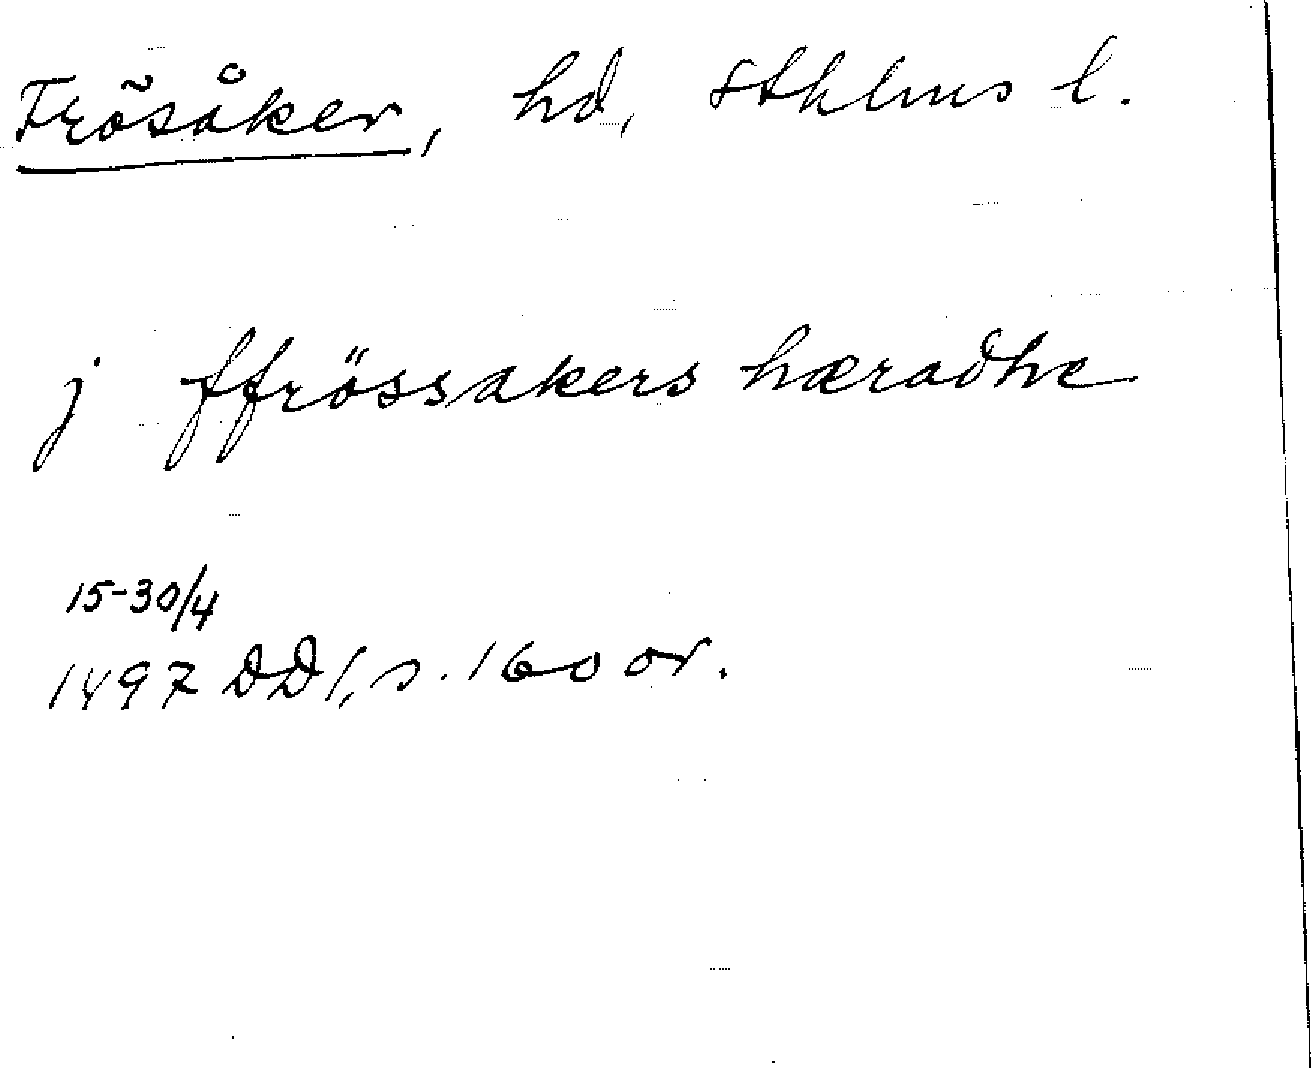 Frösåker, hd, Sthlms l.
j ffrössakers hæradhe
15-30/4
1497 DD 1, s. 160 or.